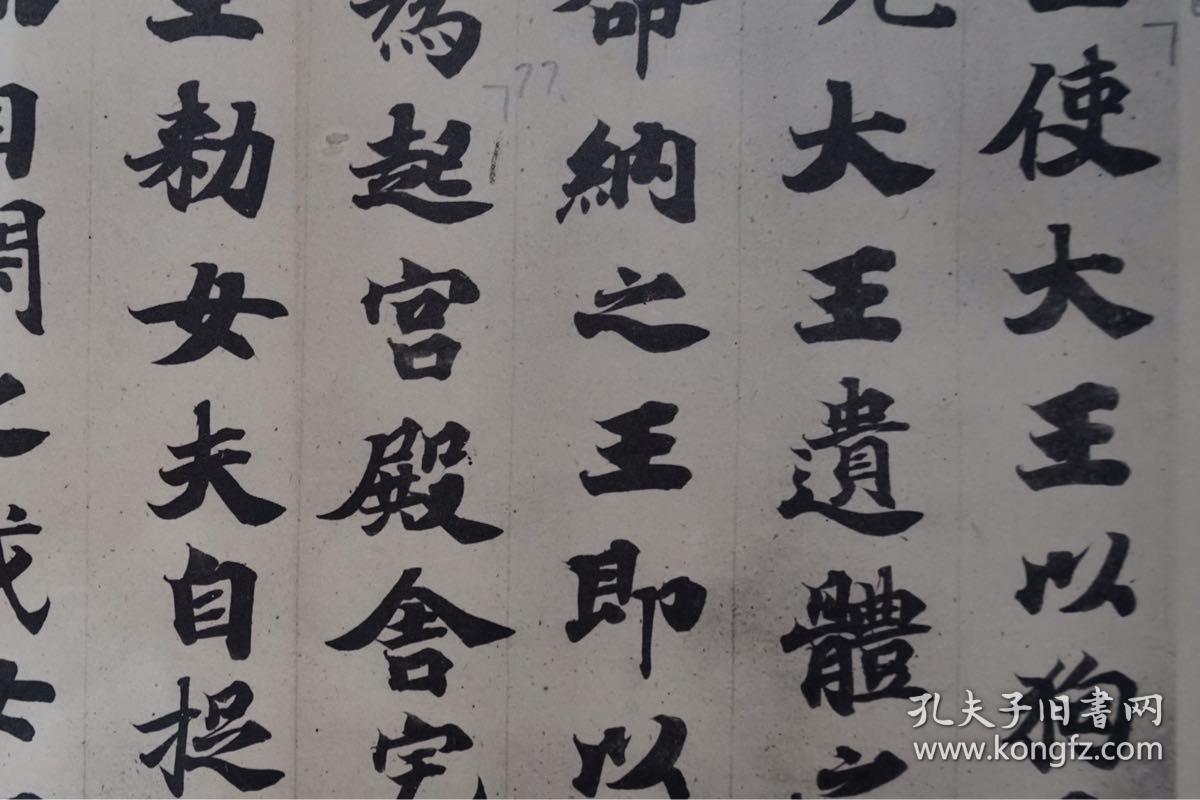 使大王以狗
大王遺體之
命納之王即以
為起宮殿舍宅
勑女夫自捉
孔夫子旧書网
www.kongfz.com